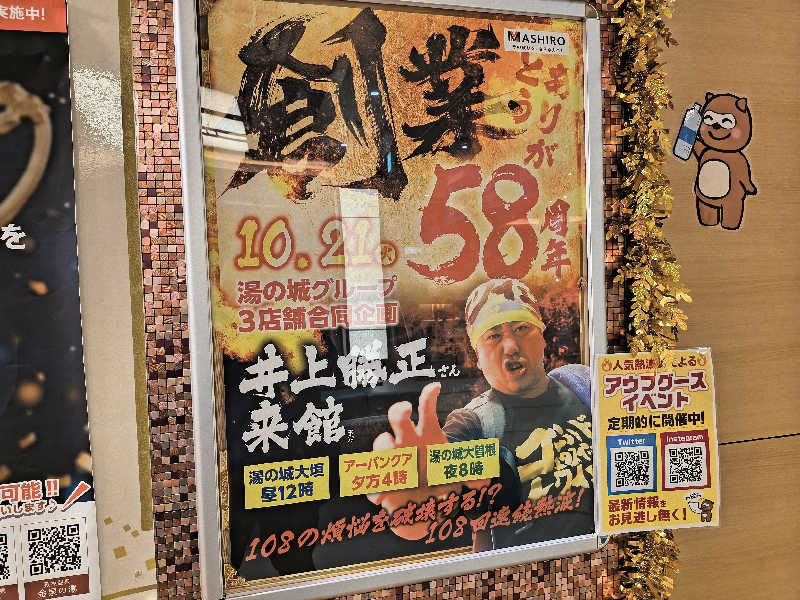 実施中!
を
可能!!
います♪
MASHIRO
創業
ありが
とう
58
周年
10.21
火
湯の城グループ
3店舗合同企画
井上勝正さん
来館
湯の城大垣
昼12時
アーバンクア
夕方4時
湯の城大曽根
夜8時
108の煩悩を破壊する!?
108回連続熱波!
人気熱波
による
アウフグース
イベント
定期的に開催中!
Twitter
Instagram
最新情報を
お見逃し無く!